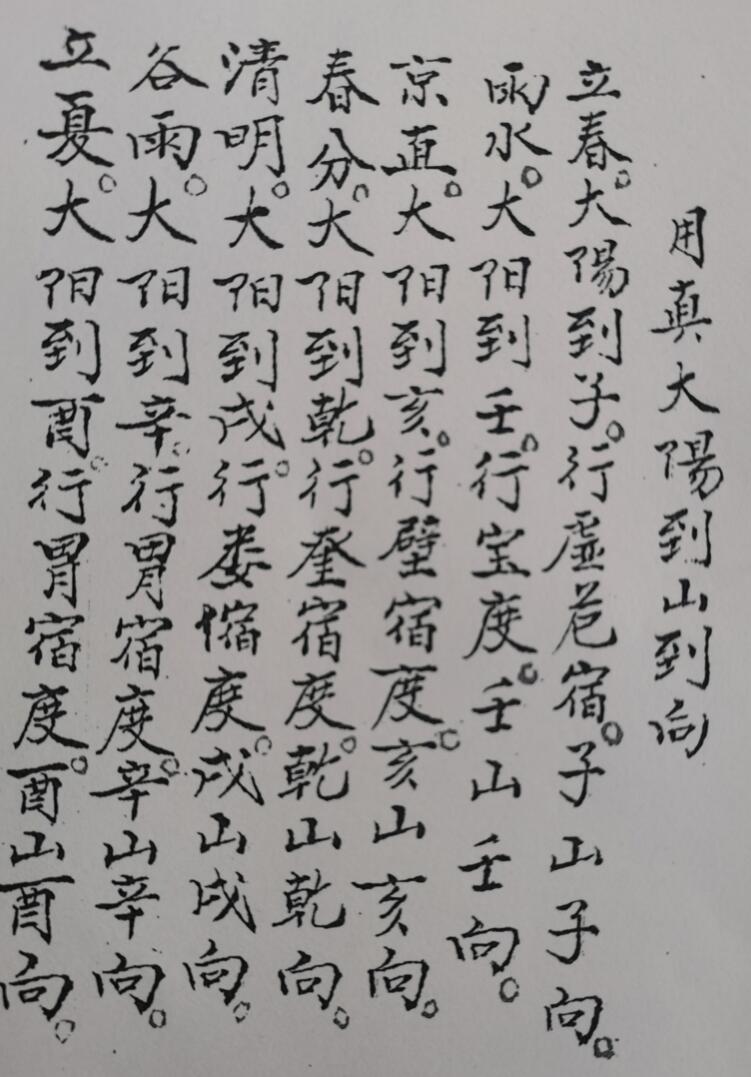 用真大陽到山到向
立春。大陽到子。行虚危宿。子山子向。
雨水。大阳到壬。行宝度。壬山壬向。
京直。大阳到亥。行壁宿度。亥山亥向。
春分。大阳到乾。行奎宿度。乾山乾向。
清明。大阳到戌。行娄宿度。戌山戌向。
谷雨。大阳到辛。行胃宿度。辛山辛向。
立夏。大阳到酉。行胃宿度。酉山酉向。